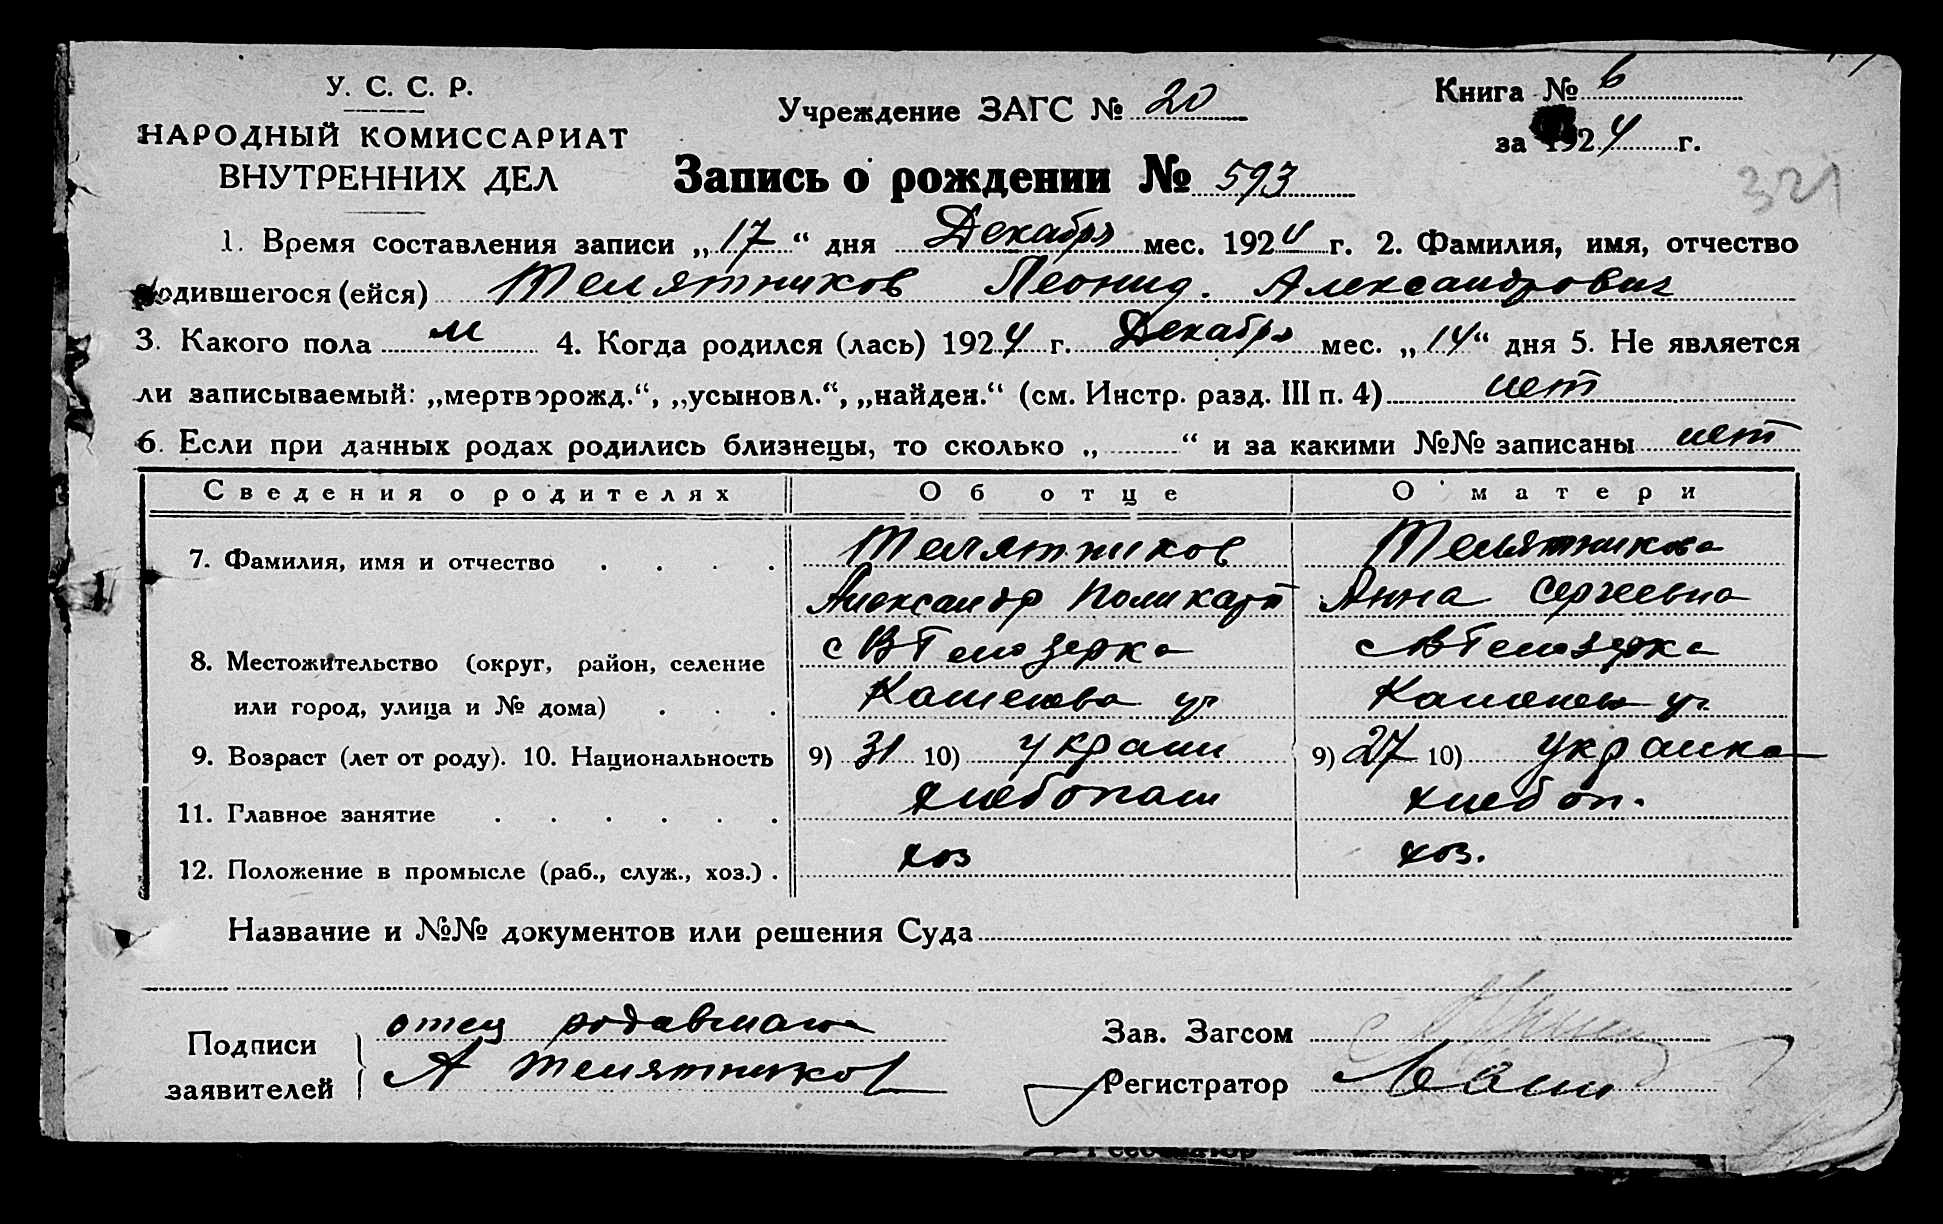 У. С. С. Р.
НАРОДНЫЙ КОМИССАРИАТ
ВНУТРЕННИХ ДЕЛ
Учреждение ЗАГС № 20
Книга № 6
за 1924 г.
Запись о рождении № 593
321
1. Время составления записи „17“ дня Декабря мес. 1924 г. 2. Фамилия, имя, отчество
родившегося (ейся) Телятников Леонид. Александрович
3. Какого пола м 4. Когда родился (лась) 1924 г. Декабря мес. „14“ дня 5. Не является
ли записываемый: „мертворожд.“, „усыновл.“, „найден.“ (см. Инстр. разд. III п. 4) нет
6. Если при данных родах родились близнецы, то сколько „ “ и за какими №№ записаны нет
Сведения о родителях Об отце О матери
7. Фамилия, имя и отчество Телятников Телятникова
Александр Поликарп Анна Сергеевна
8. Местожительство (округ, район, селение с В Белозерка с В Белозерка
или город, улица и № дома)
9. Возраст (лет от роду). 10. Национальность 9) 31 10) украин 9) 27 10) украинка
11. Главное занятие хлебопаш хлебоп.
12. Положение в промысле (раб., служ., хоз.) хоз хоз.
Название и №№ документов или решения Суда
Подписи заявителей
отец
А Телятников
Зав. Загсом
Регистратор